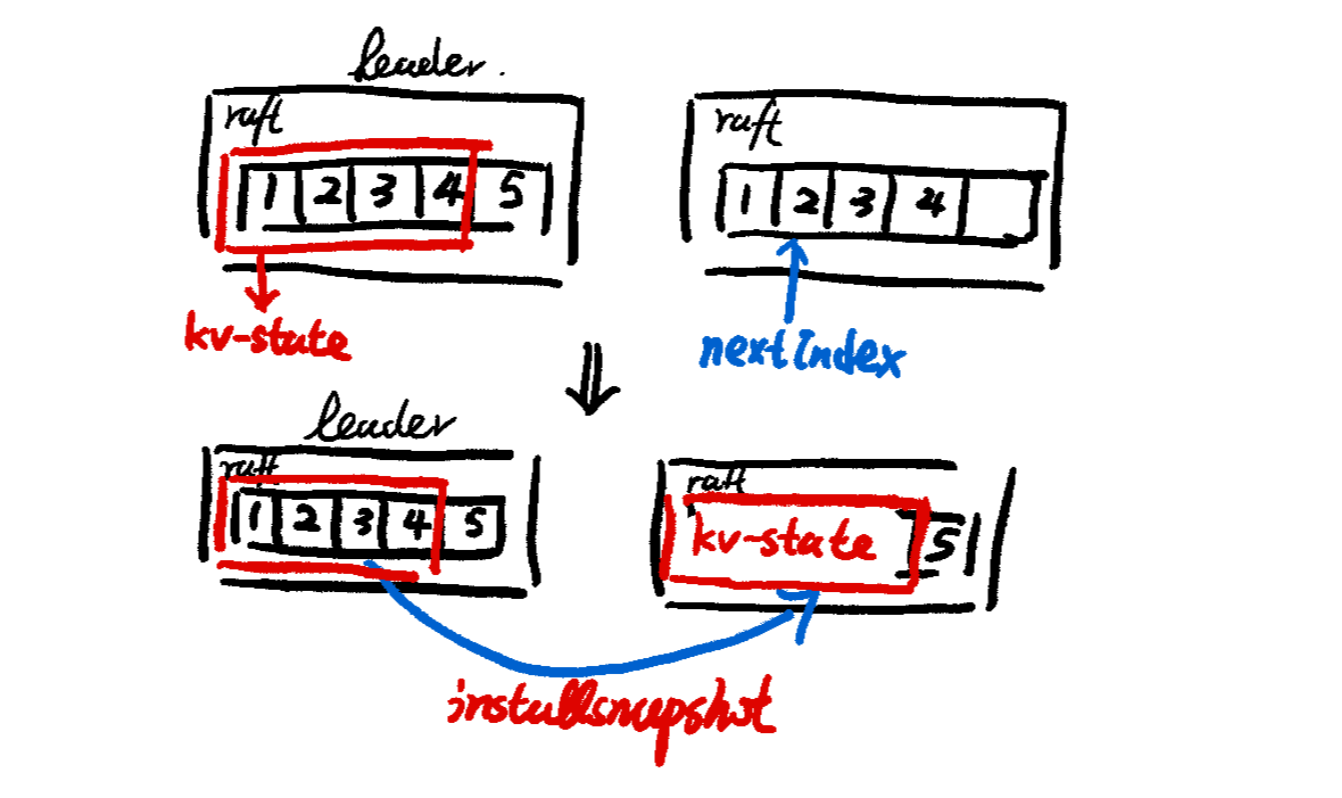 leader.
raft
1 2 3 4 5
kv-state
raft
1 2 3 4
nextIndex
leader
raft
1 2 3 4 5
raft
kv-state 5
installsnapshot